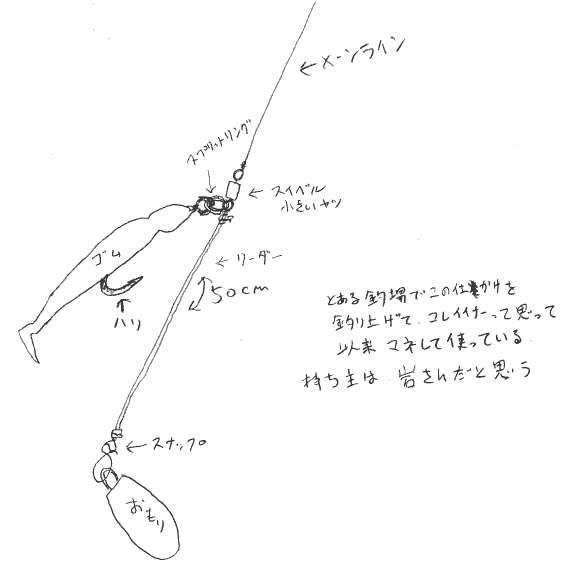 ←メーンライン
スプリットリング
←スイベル
小さいヤツ
ゴム
←リーダー
50cm
ハリ
とある釣場でこの仕掛けを
釣り上げて、コレイイナーって思って
以来 マネして使っている.
持ち主は 岩さんだと思う
←スナップ
おもり